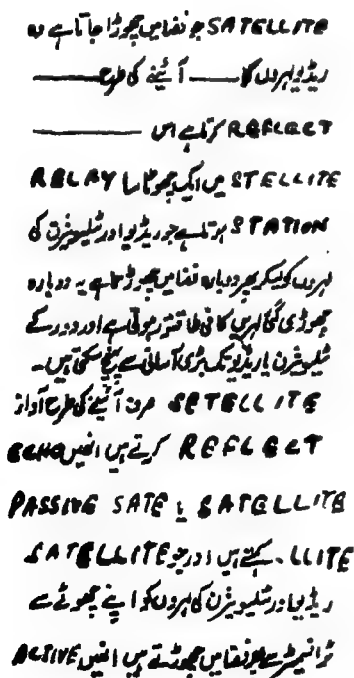 SATELLITE جو فضا میں چھوڑا جاتا ہے وہ
ریڈیو لہروں کا ——— آئینے کی طرح ———
REFLECT کرتا ہے اس ———
STELLITE میں ایک چھوٹا سا RELAY
STATION ہوتا ہے جو ریڈیو اور ٹیلیویژن کی
لہروں کو لیکر پھر دوبارہ فضا میں چھوڑتا ہے یہ دوبارہ
چھوڑی گئی لہریں کافی طاقتور ہوتی ہے اور دور کے
ٹیلیویژن یا ریڈیو تک بڑی آسانی سے پہنچ سکتی ہیں۔
SETELLITE صرف آئینے کی طرح آواز
REFLECT کرتے ہیں انھیں ECHO
SATELLITE یا PASSIVE SATE
LLITE۔ کہتے ہیں اور جو SATELLITE
ریڈیا اور ٹیلیویژن کی لہروں کو اپنے چھوٹے سے
ٹرانسمیٹر سے فضا میں چھوڑتے ہیں انھیں ACTIVE